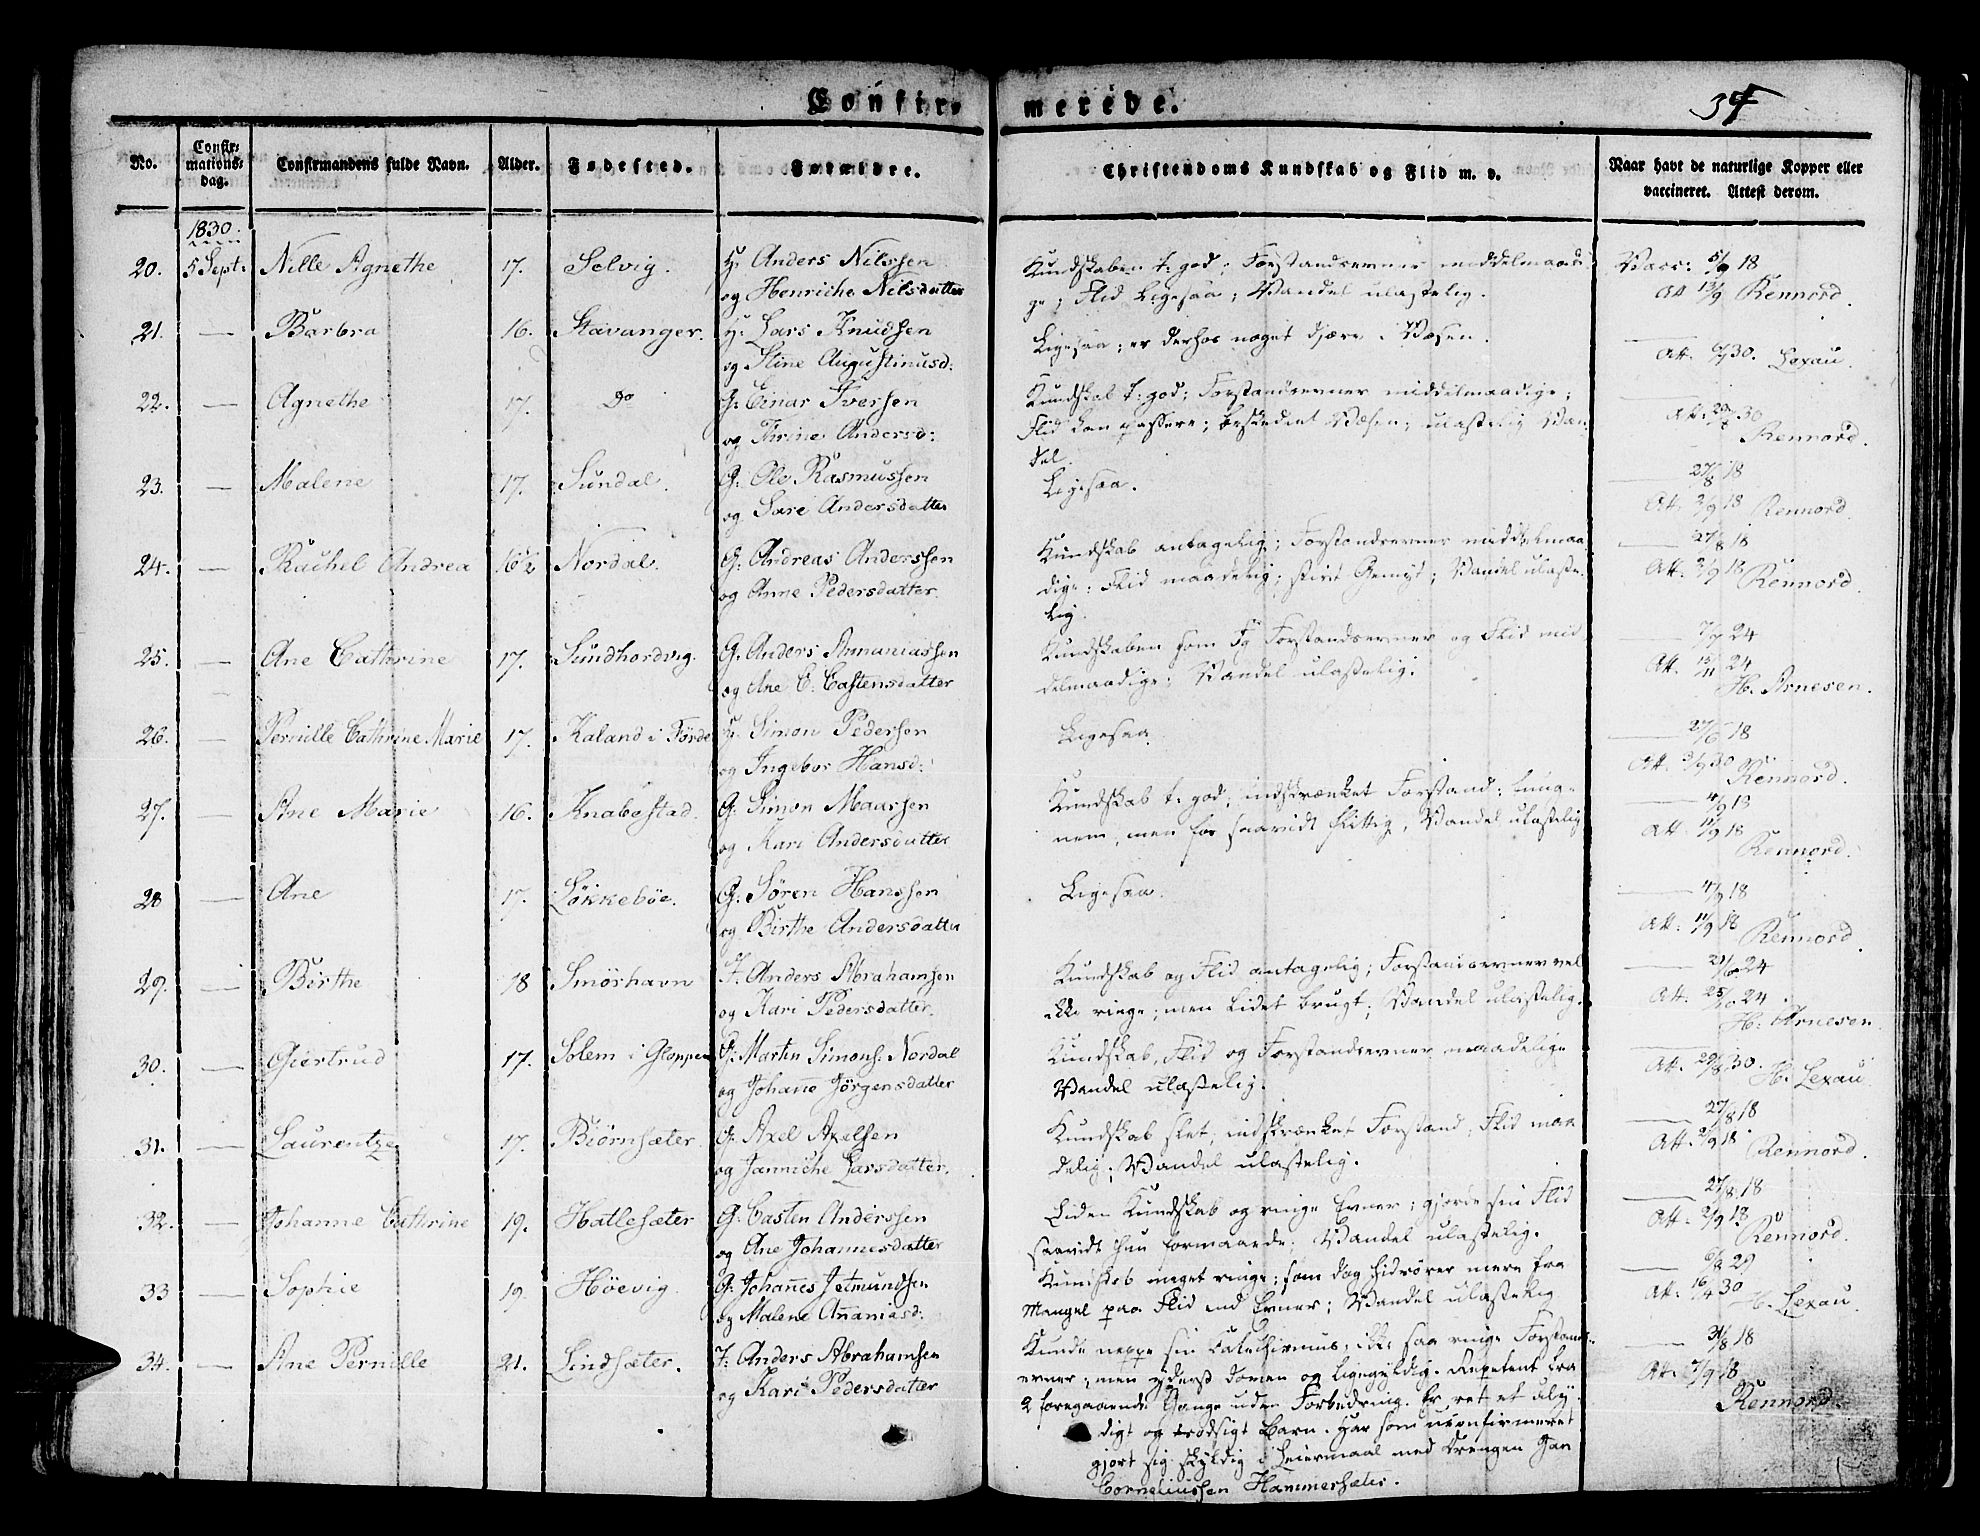 Confir-merede.
37
No.
Confir-
mations-
dag.
Confirmandens fulde Navn.
Alder.
Fødested.
Forældre.
Christendoms Kundskab og Flid m. v.
Naar havt de naturlige Kopper eller
vaccineret. Attest derom.
1830.
20. 5 Sept: Nille Agnethe 17. Selvig. Anders Nilssen
og Henriche Nilsdatter
Kundskaben t: god; Forstandsevner middelmaadi-
ge; Flid ligesaa; Vandel ulastelig.
Vacc: 5/9 18
Att 13/9 Rennord.
21. — Barbra 16. Stavanger. Lars Knudsen
og Stine Augustinusd:
Ligesaa; er derhos noget djærv i Væsen.
Att. 30. Lexau.
22. — Agnethe 17. Do G: Einar Iversen
og Thrine Andersd:
Kundskab t: god; Forstandsevner middelmaadige;
Flid kan passere; beskedent Væsen; ulastelig Van-
del.
Att. 30
Rennord.
23. — Malene 17. Sundal. G: Ole Rasmussen
og Sare Andersdatter
Ligesaa.
— 27/8 18
Att. 2/9 18 Rennord.
24. — Rachel Andrea 16 1/2 Nordal. G: Andreas Anderssen
og Anne Pedersdatter.
Kundskab antagelig; Forstandsevner middelmaa-
dige: Flid maadelig; stivt Gemyt; Vandel ulaste-
lig.
— 27/8 18
Att. 2/9 18 Rennord.
25. — Ane Cathrine 17. Sundhordvig. G: Anders Annaniassen
og Ane C. Castensdatter
Kundskaben som Forstandsevner og Flid mid-
delmaadige; Vandel ulastelig.
— 7/7 24
Att. 15/11 24
H. Arnesen.
26. — Pernille Cathrine Marie 17. Kaland i Förde Simon Pedersen
og Ingebor Hansd:
Ligesaa.
— 27/8 18
Att. 30
Rennord.
27. — Ane Marie 16. Knabestad. G: Simon Maarsen
og Kari Andersdatter
Kundskab t: god; indskrænket Forstand; lung-
nem, men for saavidt flittig, Vandel ulastelig
— 4/9 18
Att. 11/9 18
Rennord.
28 — Ane 17. Løkkebøe. G: Sören Hanssen
og Birthe Andersdatter
Ligesaa.
— 4/9 18
Att. 11/9 18
Rennord.
29. — Birthe 18 Smörhavn F: Anders Abrahamsen
og Kari Pedersdatter.
Kundskab og Flid antagelig; Forstandsevner vel
ikke ringe; men lidet brugt; Vandel ulastelig.
— 24
Att. 24
H. Arnesen
30. — Giertrud 17. Solem i Gloppen G: Martin Simons: Nordal
og Johane Jörgensdatter
Kundskab, Flid og Forstandsevner maadelige
Vandel ulastelig.
Att. 29/8. 30.
H. Lexau
31. — Laurentze 17. Biörnsæter. G: Axel Axelsen
og Janniche Larsdatter.
Kundskab slet; indskrænket Forstand; Flid maa-
delig; Vandel ulastelig.
— 27/8 18
Att. 2/9 18.
Rennord.
32. — Johanne Cathrine 19. Hatlesæter G: Casten Anderssen
og Ane Johannesdatter
Liden Kundskab og ringe Evner; gjorde sin Flid
saavidt hun formaaede; Vandel ulastelig.
— 27/8. 18
Att. 2/9 18
Rennord.
33 — Sophie 19. Höevig. G: Johanes Jetmundsen
og Malene Ananiasd:
Kundskab meget ringe; som dog hidrører mere fra
Mangel paa Flid end Evner; Vandel ulastelig
— 6/8 29
Att. 16/4 30
H. Lexau.
34. — Ane Pernille 21. Lindsæter. F: Anders Abrahamsen
og Kari Pedersdatter
Kunde neppe sin Catechismus; ikke saa ringe Forstands-
evner; men yderst doven og ligegyldig. Repetent fra
2 foregaaende Gange uden Forbedring. Er ret et uly-
digt og trodsigt Barn. Har som uconfirmeret
gjort sig skyldig i Leiermaal med Drengen Jan
Corneliussen Hammersæter.
— 31/8 18
Att. 7/9 18
Rennord.